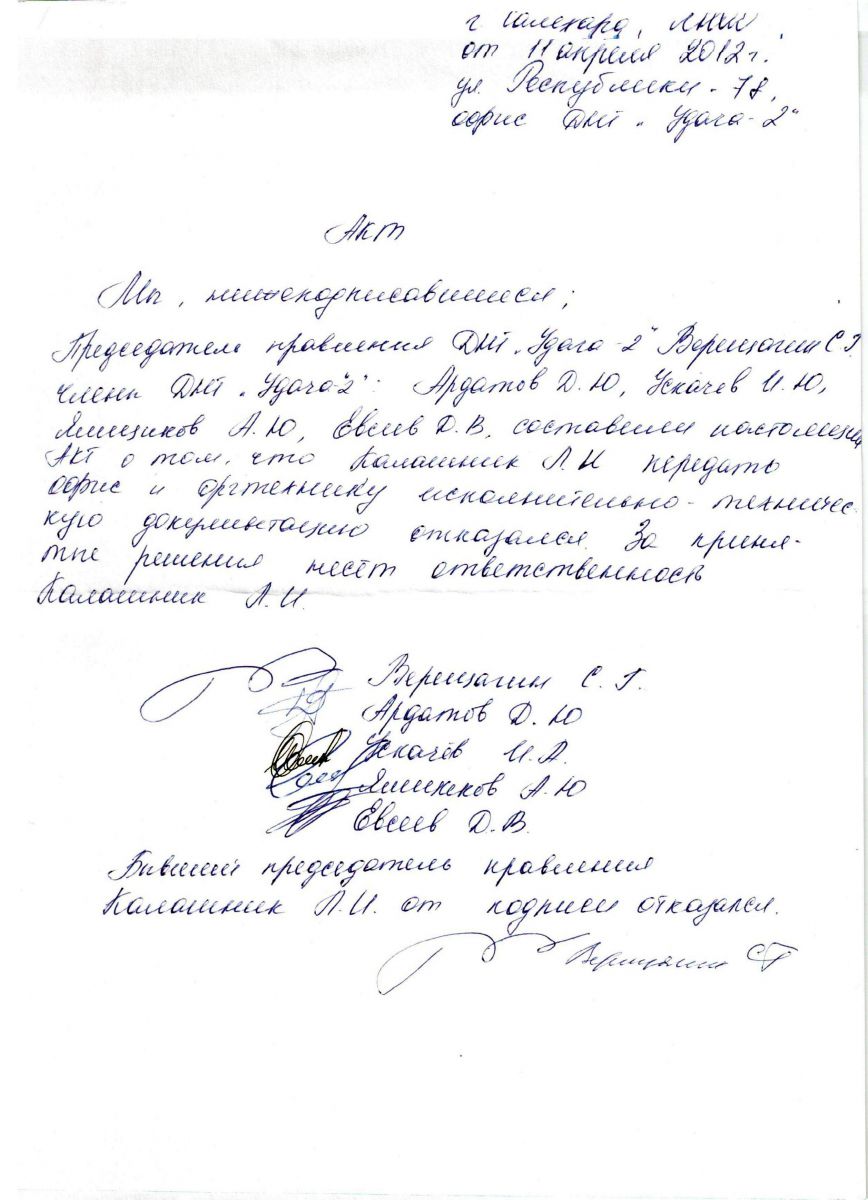 г Салехард, ЯНАО,
от 11 апреля 2012 г.
ул. Республики - 78,
офис ДНТ „Удача-2"
Акт
Мы, нижеподписавшиеся;
Председатель правления ДНТ „Удача-2" Верещагин С Г.
члены ДНТ „Удача-2": Ардатов Д.Ю, Ускачев И.Ю,
Ямщиков А.Ю, Евсеев Д.В, составили настоящий
АКТ о том, что Калашник Л.И передать
офис и оргтехнику исполнительно-техничес-
кую документацию отказался. За приня-
тые решения несёт ответственность
Калашник Л.И.
Верещагин С. Г.
Ардатов Д. Ю
Ускачёв И.А.
А.Ю
Евсеев Д.В.
Бывший председатель правления
Калашник Л.И. от подписи отказался.
Верещагин СГ